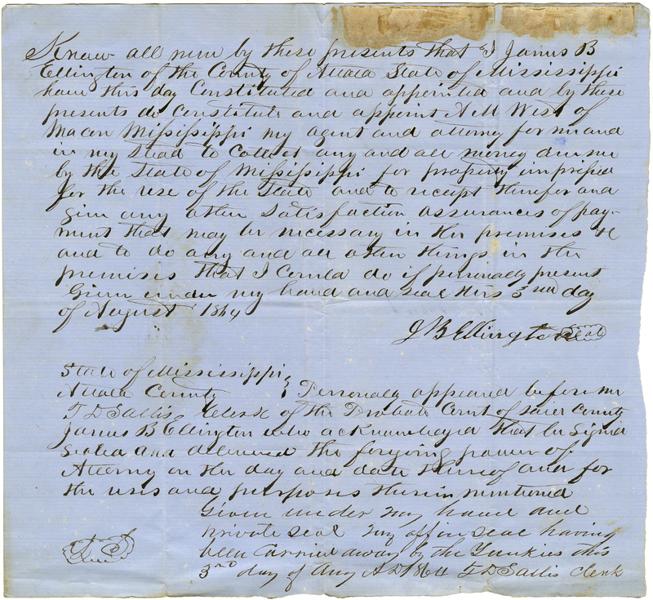 Know all men by these presents that I James B
Ellington of the County of Attala State of Mississippi
have this day Constituted and appointed and by these
presents do Constitute and appoint A M West of
Macon Mississippi my agent and attorney for me and
in my stead to Collect any and all money due me
by the State of Mississippi for property impressed
for the use of the State and to receipt therefor and
give any other satisfaction assurances of pay-
ment that may be necessary in the premises &
and to do any and all other things in the
premises that I could do if personally present
Given under my hand and seal this 3rd day
of August 1864
J B Ellington Seal
State of Mississippi
Attala County } Personally appeared before me
T D Sallis Clerk of the Probate Court of said County
James B Ellington who acknowledged that he signed
sealed and delivered the forgoing power of
Attorney on the day and date thereof and for
the uses and purposes therein mentioned
Given under my hand and
private seal my office seal having
been carried away by the Yankies this
3rd day of Aug A D 1864 T D Sallis Clerk
Seal